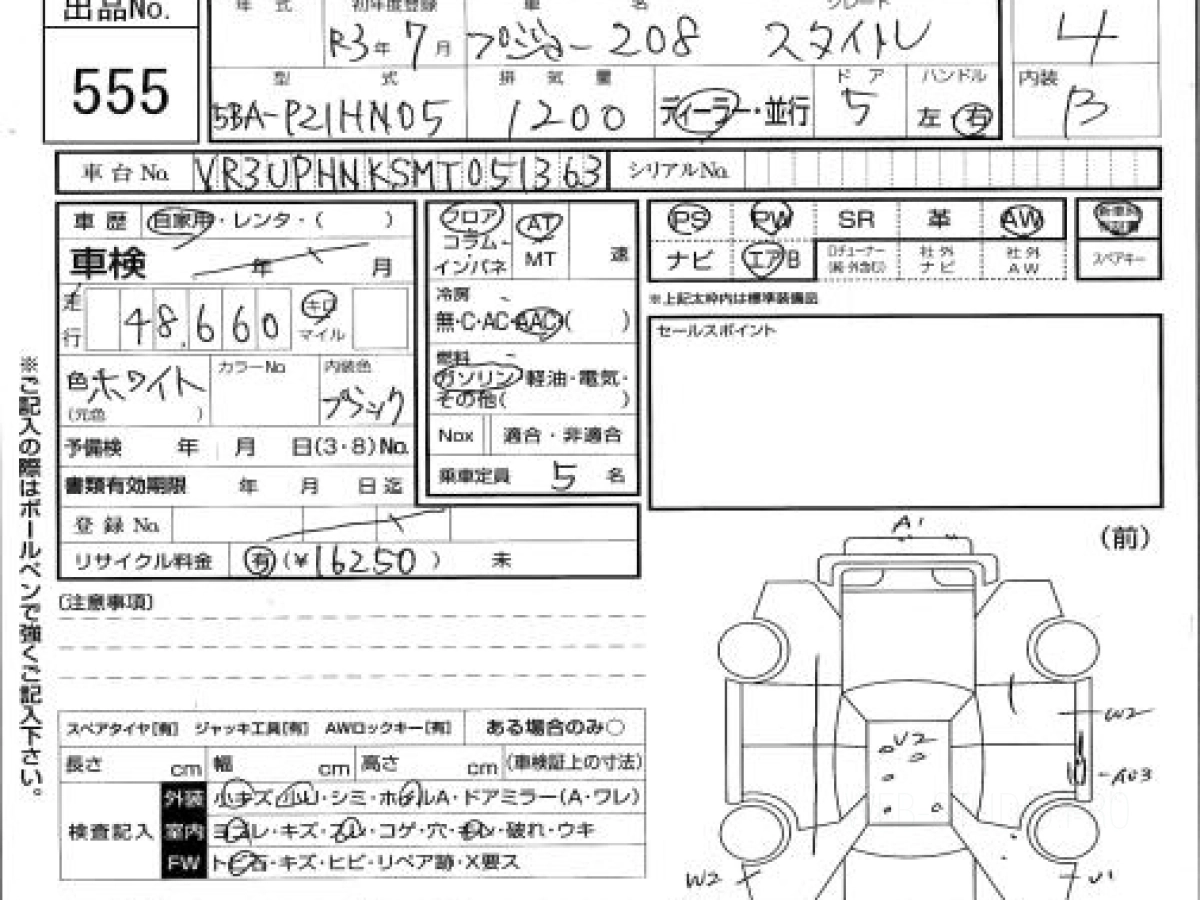 出品No.
年 式 初年度登録 車 名 グレード
R3年 7月 プジョー208 スタイル 4
555
型 式 排 気 量 ドア ハンドル 内装
5BA-P21HN05 1200 ディーラー・並行 5 左・右 B
車台No. VR3UPHNKSMT051363 シリアルNo.
車歴 自家用・レンタ・( )
車検 年 月
走行 48,660 キロ マイル
色 ホワイト カラーNo 内装色 ブラック
(元色 )
予備検 年 月 日(3・8)No.
書類有効期限 年 月 日迄
登録No.
リサイクル料金 有(¥16250) 未
フロア AT
コラム・
インパネ MT 速
冷房
無・C・AC・AAC( )
燃料
ガソリン・軽油・電気・
その他( )
Nox 適合・非適合
乗車定員 5 名
PS PW SR 革 AW
ナビ エアB 社外ナビ 社外AW スペアキー
※上記太枠内は標準装備品
セールスポイント
※ご記入の際はボールペンで強くご記入下さい。
[注意事項]
スペアタイヤ[有] ジャッキ工具[有] AWロックキー[有] ある場合のみ○
長さ cm 幅 cm 高さ cm (車検証上の寸法)
検査記入
外装 小キズ・小凹・シミ・ホイルA・ドアミラー(A・ワレ)
室内 ヨゴレ・キズ・スレ・コゲ・穴・モレ・破れ・ウキ
FW トビ石・キズ・ヒビ・リペア跡・X要ス
(前)
A1
W2
U2
AU3
W2
U1